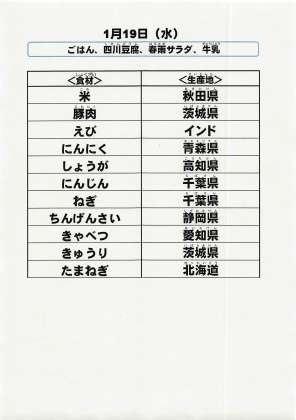 1月19日（水）
ごはん、四川豆腐、春雨サラダ、牛乳
＜食材＞ ＜生産地＞
米 秋田県
豚肉 茨城県
えび インド
にんにく 青森県
しょうが 高知県
にんじん 千葉県
ねぎ 千葉県
ちんげんさい 静岡県
きゃべつ 愛知県
きゅうり 茨城県
たまねぎ 北海道